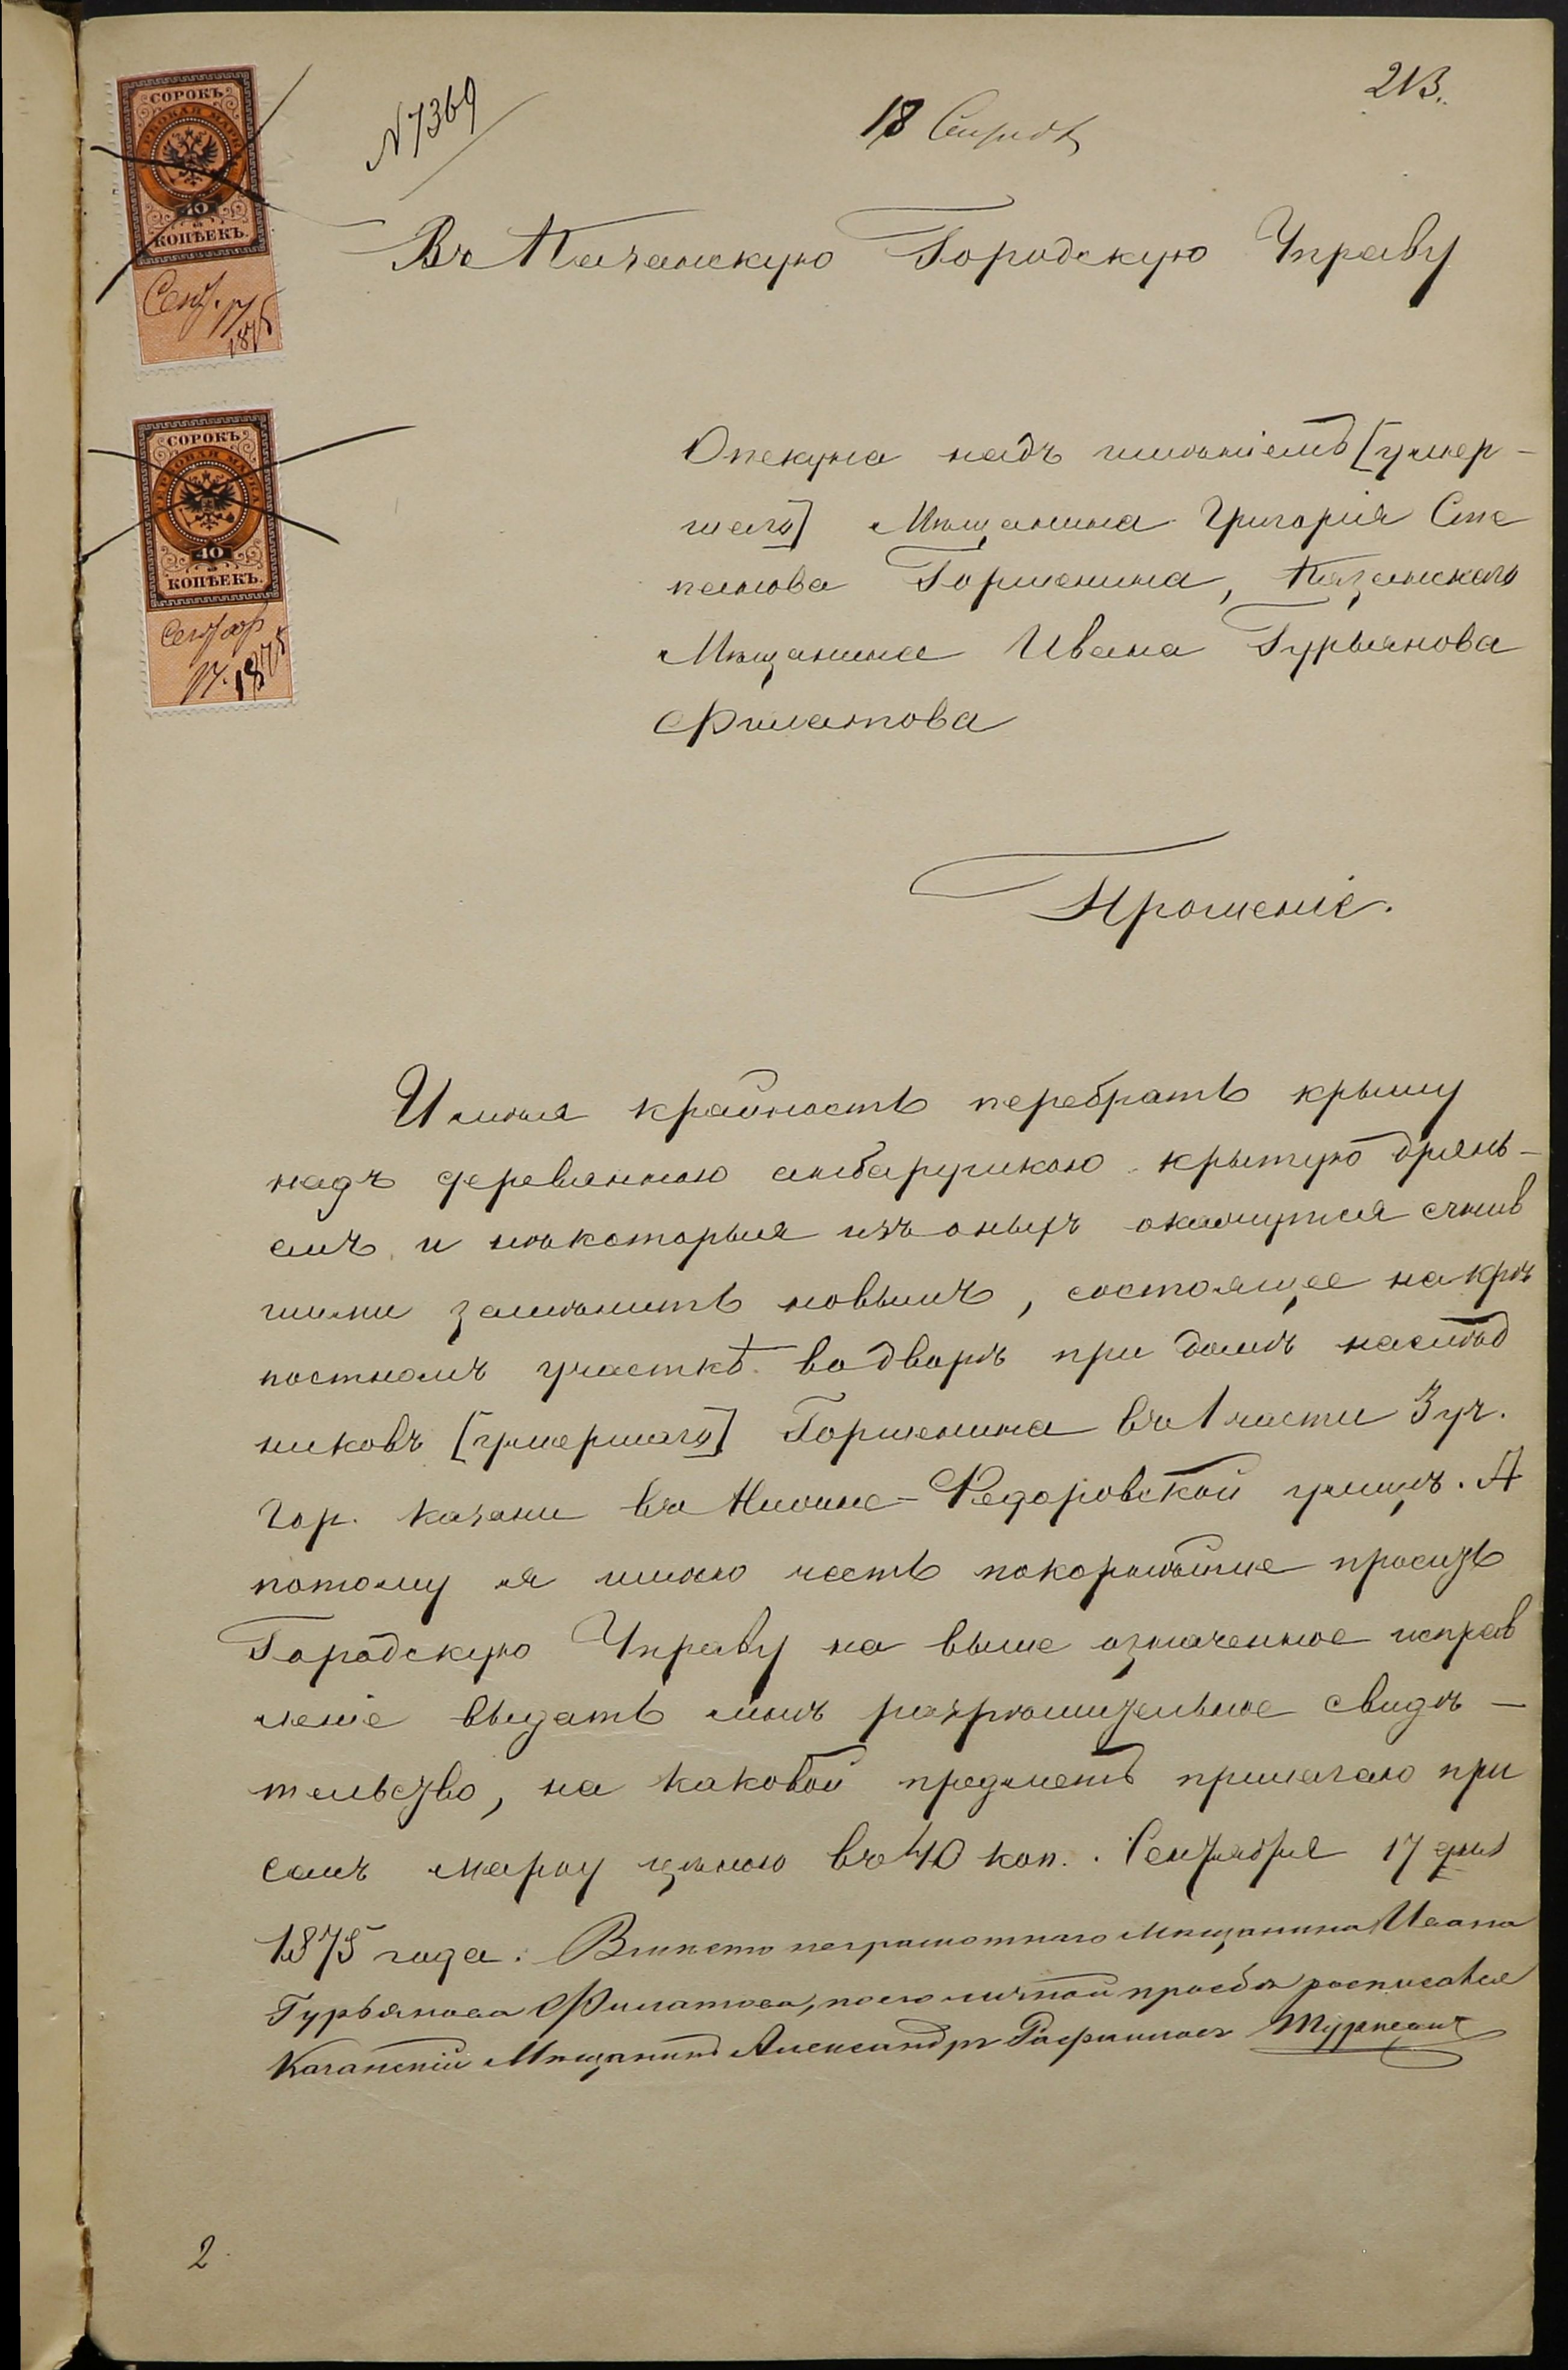 213.
N 7369
18 Сентяб
СОРОКЪ
ГЕРБОВАЯ МАРКА
40
КОПѢЕКЪ.
Сент. 17
1875
СОРОКЪ
ГЕРБОВАЯ МАРКА
40
КОПѢЕКЪ.
Сентябр
17. 1875
Въ Казанскую Городскую Управу
Опекуна надъ имѣніемъ [умер-
шаго] Мѣщанина Григорія Сте
панова Горшенина, Казанскаго
Мѣщанина Ивана Гурьянова
Филатова
Прошеніе.
Имѣя крайность перебрать крышу
надъ деревянною амбарушкою крытую дрянь-
емъ и нѣкоторыя изъ оныхъ окажутся сгнив
шими замѣнить новымъ, состоящее на крѣ
постномъ участкѣ во дворѣ при домѣ наслѣд
никовъ [умершаго] Горшенина въ 1 части 3 уч.
гор. Казани въ Нижне-Федоровской улицѣ. А
потому я имѣю честь покорнѣйше просить
Городскую Управу на выше означенное исправ
леніе выдать мнѣ разрѣшительное свидѣ-
тельство, на каковой предметъ прилагаю при
семъ марку цѣною въ 40 коп. Сентября 17 дня
1875 года. Вмѣсто неграмотнаго Мѣщанина Ивана
Гурьянова Филатова, по его личной прозьбѣ росписался
Казанскій Мѣщанинъ Александръ
2